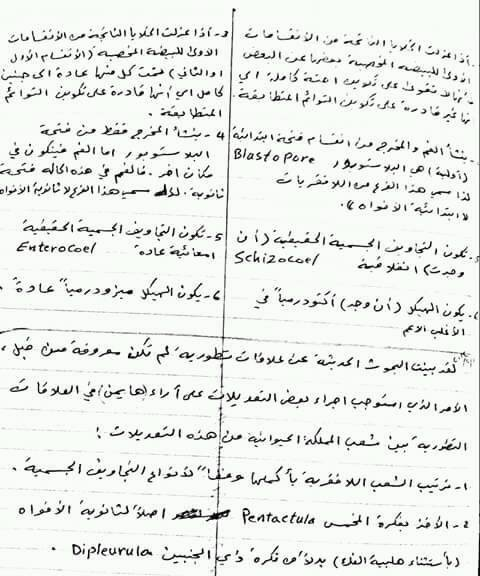 إذا عزلت الخلايا الناتجة من الانقسامات
الاولى للبيضة المخصبة بعضها عن البعض
فأنها لا تقوى على تكوين اجنة كاملة، اي
انها غير قادرة على تكوين التوائم المتطابقة.
ينشأ الفم والمخرج من انقسام فتحة ابتدائية
(أولية) هي البلاستوبور Blastopore
لذا سمي هذا الفرع من اللافقريات
(ابتدائية الافواه).
تكون التجاويف الجسمية الحقيقية (أن
وجدت) انفلاقية Schizocoel
يكون الهيكل (أن وجد) أكتودرمياً في
الأغلب الاعم
3- أذا عزلت الخلايا الناتجة من الانقسامات
الاولى للبيضة المخصبة (الانقسام الأول
او الثاني) نمت كل منها عادة الى جنين
كامل اي أنها قادرة على تكوين التوائم
المتطابقة.
4- ينشأ المخرج فقط من فتحة
البلاستوبور اما الفم فيتكون في
مكان آخر. فالفم في هذه الحالة فتحة
ثانوية. لذلك سمي هذا الفرع لاثانوية الافواه
5- تكون التجاويف الجسمية الحقيقية
امعائية عادة Enterocoel
6- يكون الهيكل ميزودرمياً عادة.
لقد بينت البحوث الحديثة عن علاقات تطورية لم تكن معروفة من قبل،
الأمر الذي استوجب اجراء بعض التعديلات على آراء (هايمن) في العلاقات
التطورية بين شعب المملكة الحيوانية من هذه التعديلات:
1- ترتيب الشعب اللافقرية بأكملها وفقاً لأنواع التجاويف الجسمية.
2- الأخذ بفكرة المخمس Pentactula اصلاً لثانوية الأفواه
(بأستثناء هلبية الفك) بدلاً من فكرة ذي الجنبين Dipleurula.